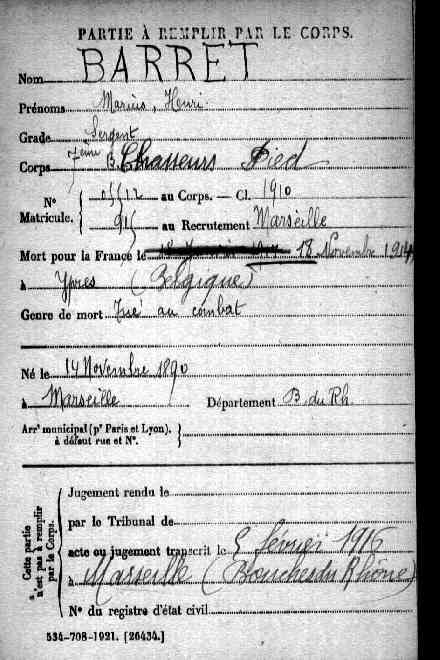 PARTIE À REMPLIR PAR LE CORPS.
Nom BARRET
Prénoms Marius, Henri
Grade Sergent
Corps 7ème B. Chasseurs Pied
N° Matricule. { au Corps. — Cl. 1910
915 au Recrutement Marseille
Mort pour la France le 18 Novembre 1914
à Ypres (Belgique)
Genre de mort Tué au combat
Né le 14 Novembre 1890
à Marseille Département B. du Rh.
Arrt municipal (pr Paris et Lyon), à défaut rue et N°. }
Cette partie n'est pas à remplir par le Corps.
Jugement rendu le
par le Tribunal de
acte ou jugement transcrit le 5 février 1916
à Marseille (Bouches du Rhône)
N° du registre d'état civil
534-708-1921. [26434.]